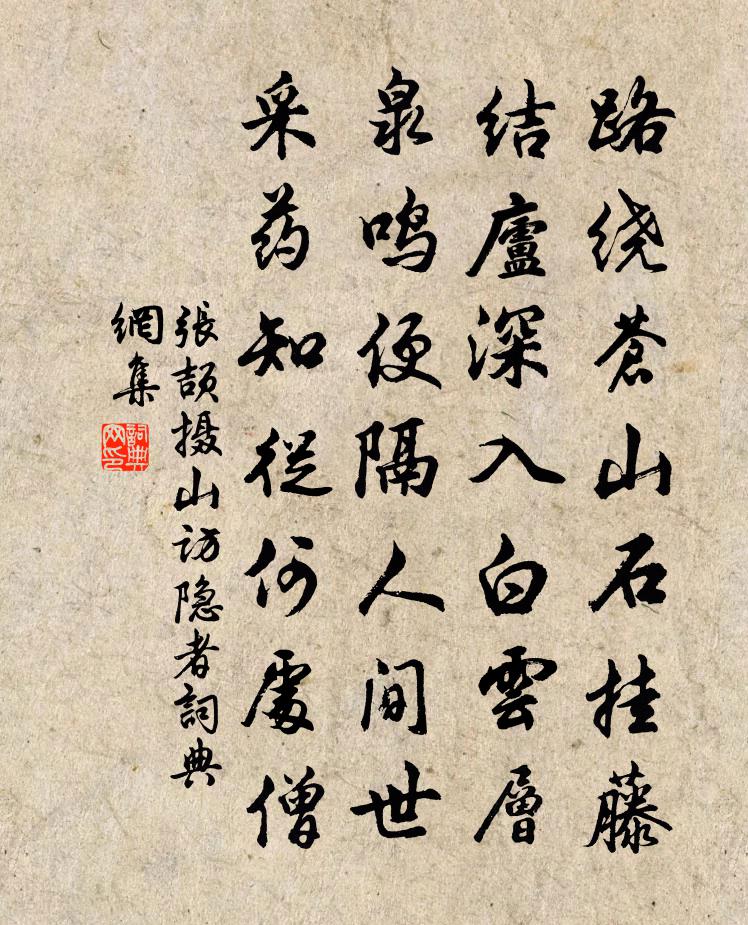 路绕苍山石挂藤
结廬深入白雲層
泉鸣便隔人间世
采药知從何處僧
張頡摄山访隐者詞典
網集
詞典
网印